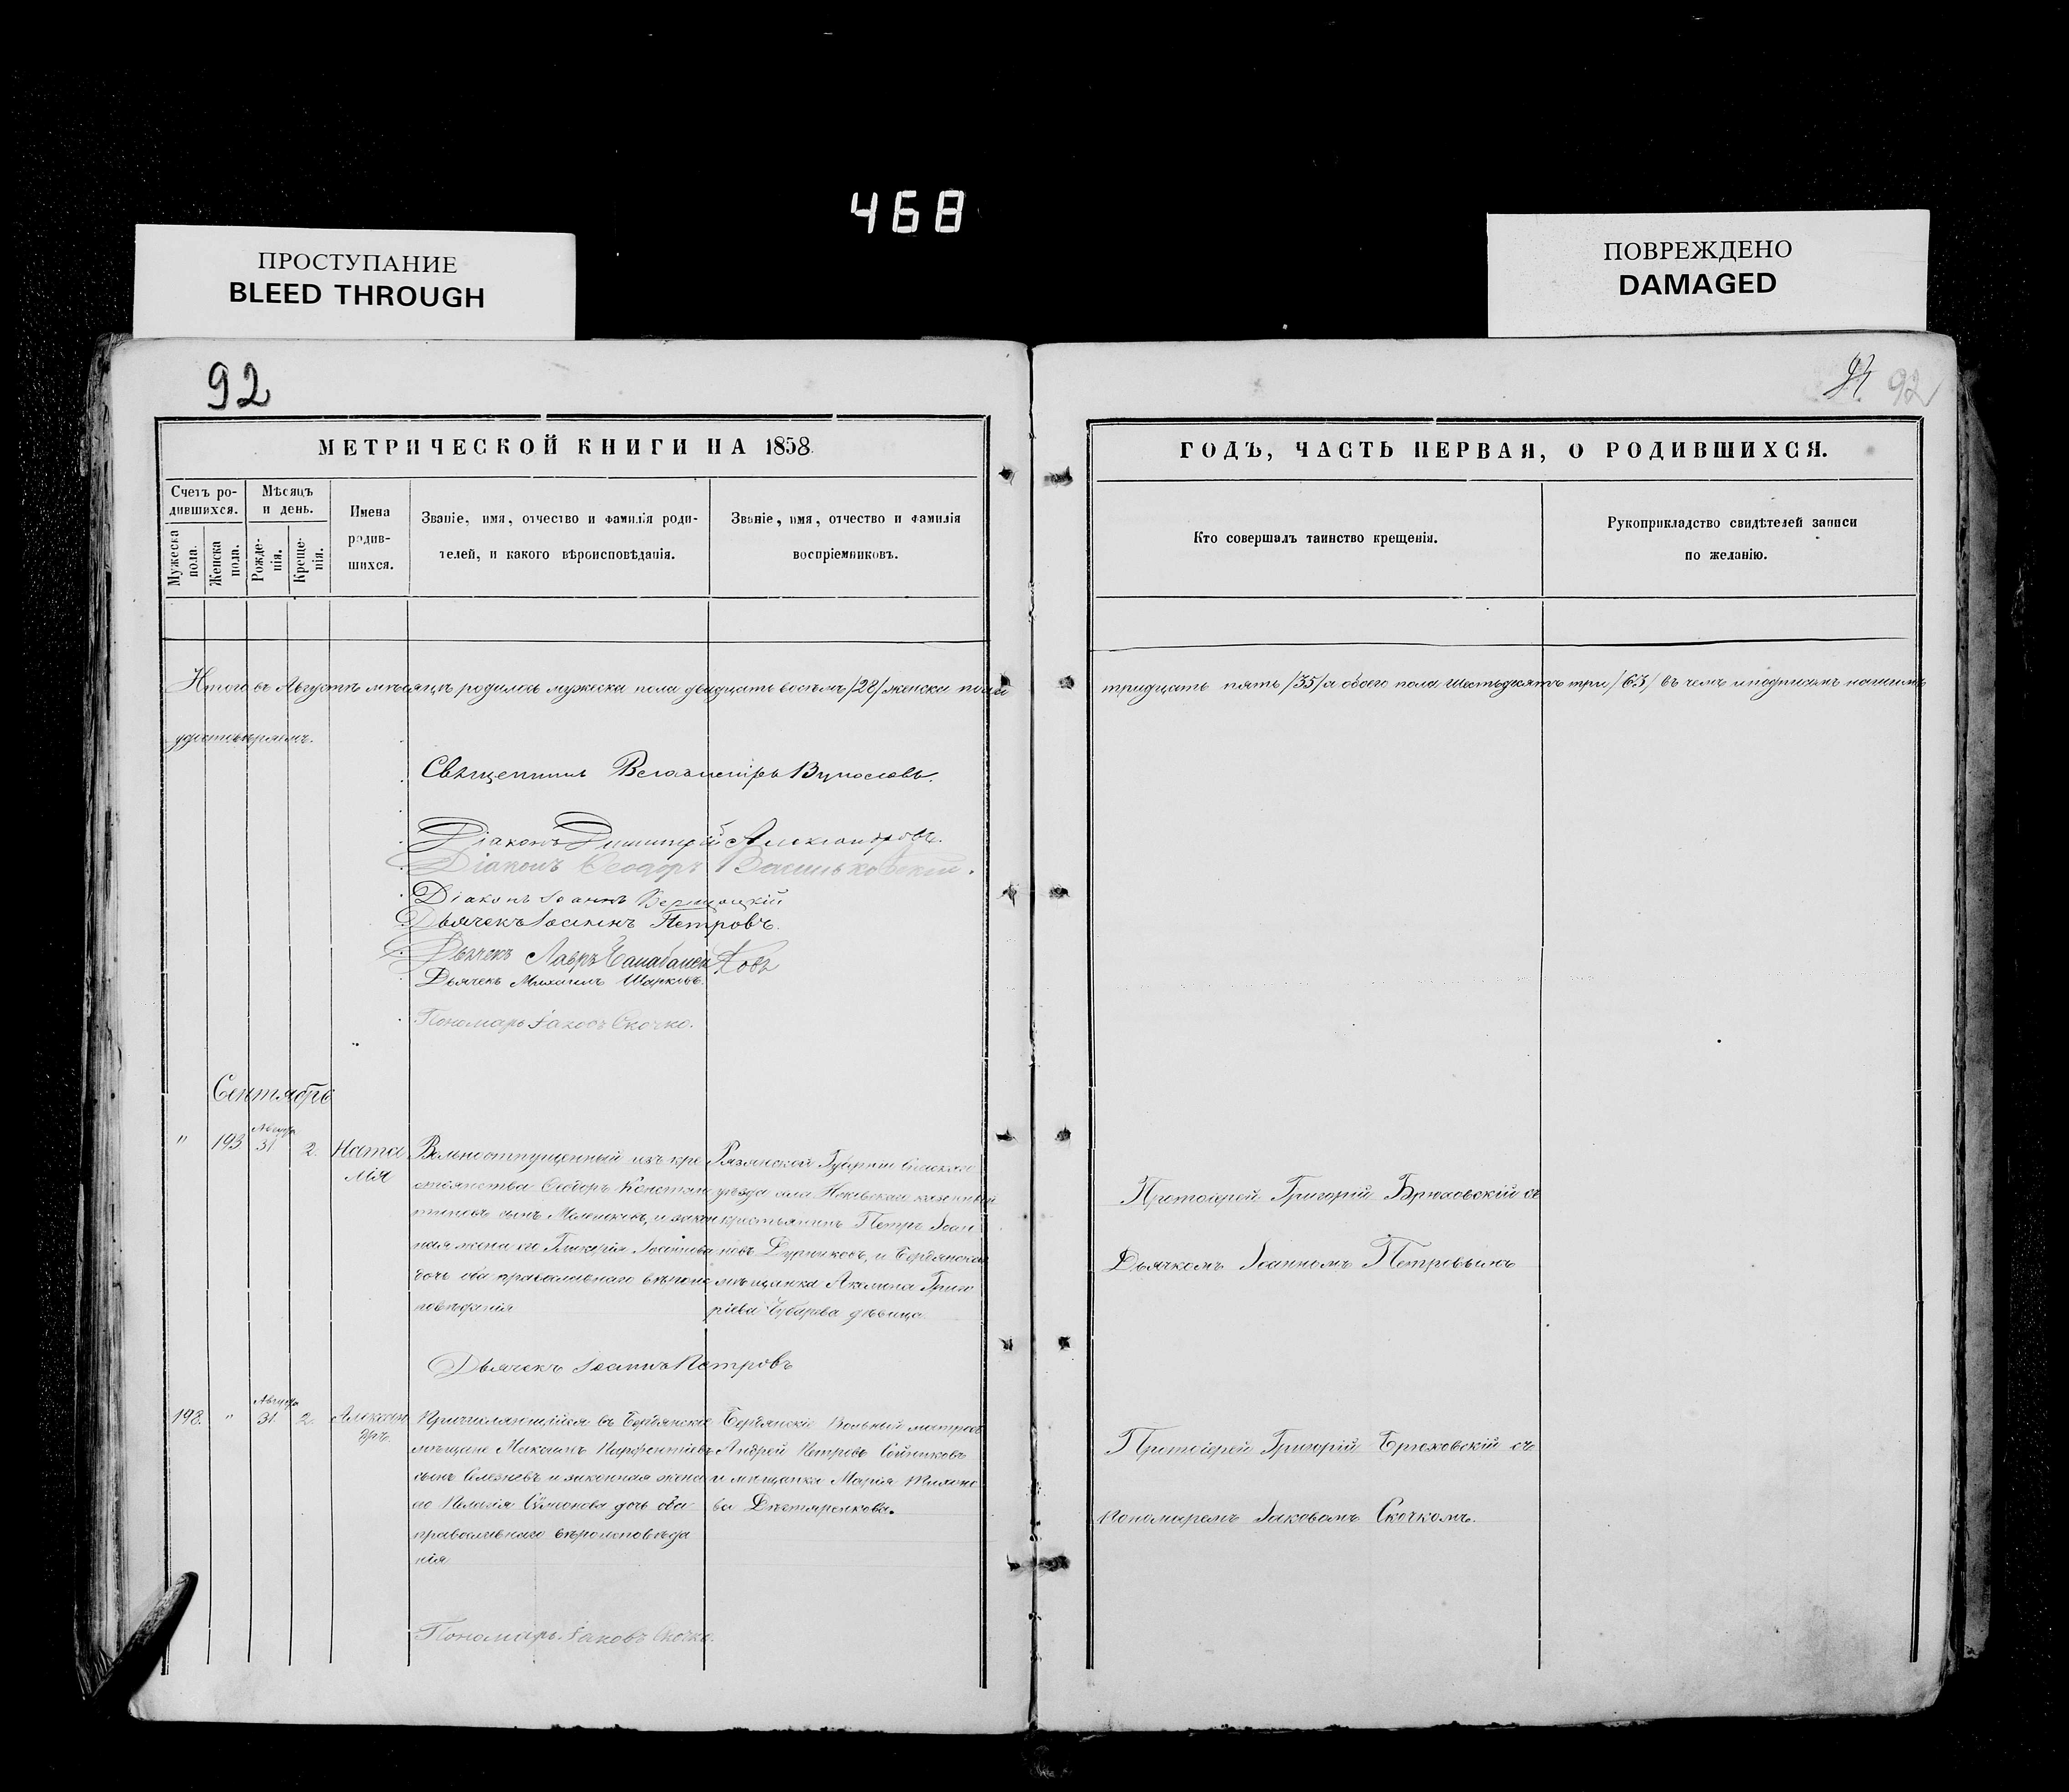 468
ПРОСТУПАНИЕ
BLEED THROUGH
ПОВРЕЖДЕНО
DAMAGED
92
92
МЕТРИЧЕСКОЙ КНИГИ НА 1858
ГОДЪ, ЧАСТЬ ПЕРВАЯ, О РОДИВШИХСЯ.
Счетъ ро-
дившихся.
Мужеска
пола.
Женска
пола.
Мѣсяцъ
и день.
Рожде-
нія.
Креще-
нія.
Имена
родив-
шихся.
Званіе, имя, отчество и фамилія роди-
телей, и какого вѣроисповѣданія.
Званіе, имя, отчество и фамилія
воспріемниковъ.
Кто совершалъ таинство крещенія.
Рукоприкладство свидѣтелей записи
по желанію.
Итого въ Августѣ мѣсяцѣ родилось мужеска пола двадцать восемь /28/ женска пола
тридцать пять /35/ а обоего пола шестьдесятъ три /63/ въ чемъ и подписомъ нашимъ
удостовѣряемъ.
Священникъ
Діаконъ Димитрій Александровъ.
Діаконъ Ѳеодоръ Васильковскій.
Діаконъ Іоаннъ
Дьячекъ Іоаннъ Петровъ.
Дьячекъ Лавръ
Дьячекъ Михаилъ Шарковъ.
Пономарь Іаковъ Скочко.
Сентябрь
" 193 Августа 31 2. Ната
лія
Вольноотпущенный изъ кре
стьянства Ѳедоръ Констан
тиновъ сынъ и закон
ная жена его Гликерія Іоаннова
дочь оба православнаго вѣроис
повѣданія
Рязанской Губерніи
уѣзда села казенный
крестьянинъ Петръ Іоан
новъ и Бердянская
мѣщанка Акилина Григо
ріева Чубарева дѣвица
Протоіерей Григорій Брюховскій съ
Дьячкомъ Іоанномъ Петровымъ
Дьячекъ Іоаннъ Петровъ
198. " Августа 31. 2. Алексан
дръ.
Причисляющійся въ Бердянскіе
мѣщане Максимъ Парфентіевъ
сынъ Селезневъ и законная жена
его Пелагія Сѵмеонова дочь оба
православнаго вѣроисповѣда
нія
Бердянскіе Вольный матросъ
Андрей Петровъ
и мѣщанка Марія
ва
Протоіерей Григорій Брюховскій съ
Пономаремъ Іаковомъ Скочкомъ.
Пономарь Іаковъ Скочко.